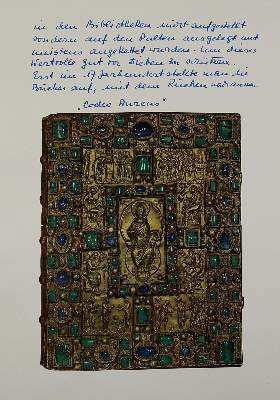 in den Bibliotheken nicht aufgestellt
sondern auf den Pulten ausgelegt und
meistens angekettet wurden. Um dieses
Wertvolle Gut vor Dieben zu schützen.
Erst im 17 Jarhundert stellte man die
Bücher auf, mit dem Rücken nach
"Codex Aureus"